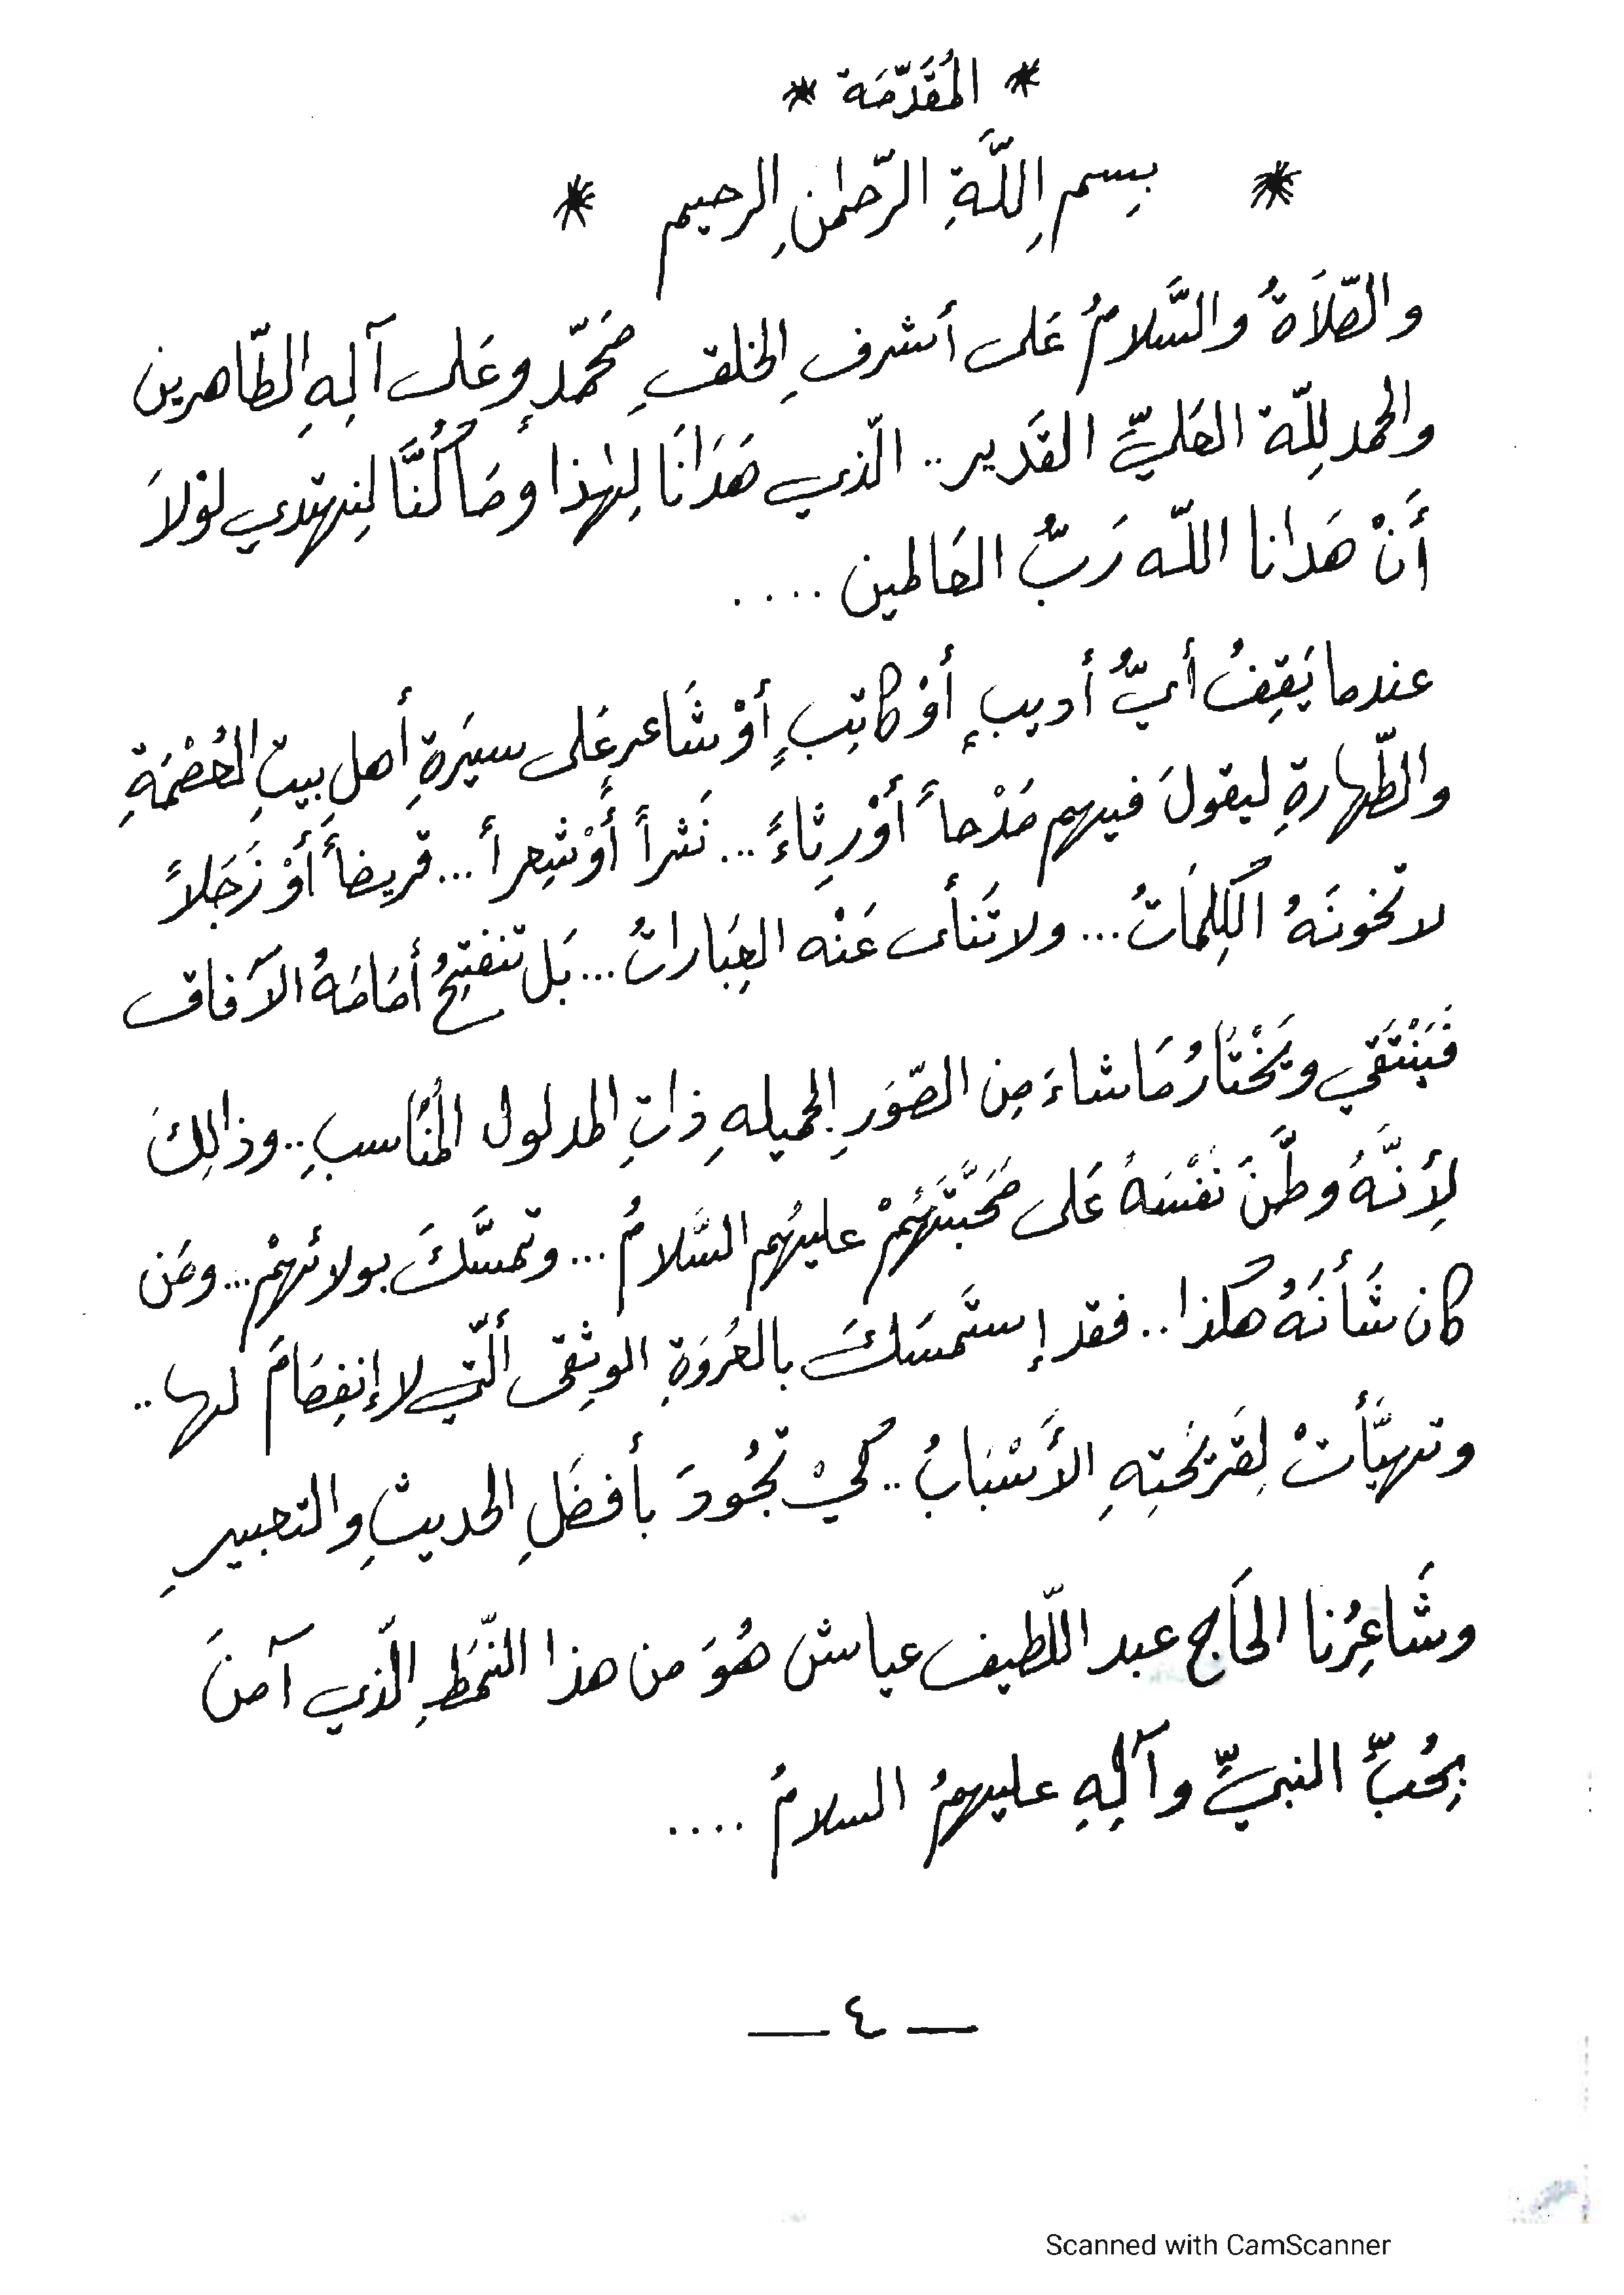 * المُقَدّمَة *
* بِسمِ اللَّهِ الرّحمٰنِ الرحيم *
والصّلاَةُ والسَّلامُ عَلى أشرفِ الخلقِ مَحَمّدٍ وعَلى آلِهِ الطّاهرين
والحمد للِلّه العَليِّ القَدير .. الّذي هَدَانَا لِهٰذا ومَا كُنَّا لِنهتدي لوْلاَ
أَنْ هَدانا اللّه رَبُّ العَالمين ....
عندما يَقِفُ أيُّ أديبٍ أوْ كاتِبٍ أوْ شَاعرٍ عَلى سيَرَةِ أهلِ بيتِ العُصْمَةِ
والطّهارةِ ليقولَ فيهم مَدْحاً أوْ رِثاءً ... نَثراً أوْ شِعراً ... قريضاً أوْ زَجَلاً
لا تخونَهُ الكَلِمَاتُ ... ولا تَنأى عَنْه العِبَاراتُ ... بَل تنفتِحُ أمَامَهُ الآفاق
فَيَنْتَقي ويَخْتَارُ مَا شاءَ مِن الصّوَرِ الجميلهِ ذاتِ المدلول المُنَاسبِ .. وذالِكَ
لِأنَّهُ وطَّنَ نَفْسَهُ عَلى مَحَبَّتَهُمْ عليهُم السَّلامُ ... وتمسَّكَ بولائهمْ ... ومَن
كان شَأنَهُ هكَذا .. فقد إستَمسَكَ بالعُروَةِ الوثِقى ألّتي لا إنفِصَامَ لها ..
وتهيَّأتْ لِقَريَحَتِهِ الأَسْبَابُ .. كَيْ تجُودَ بأفضَلِ الحديثِ والتعبيرِ
وشَاعِرُنا الحَاج عبد اللّطيف عياش هُوَ من هذا النّمَطِ الّذي آمنَ
بِحُبِّ النبيِّ وآلِهِ عليهمُ السلامُ ....
— ٤ —
Scanned with CamScanner